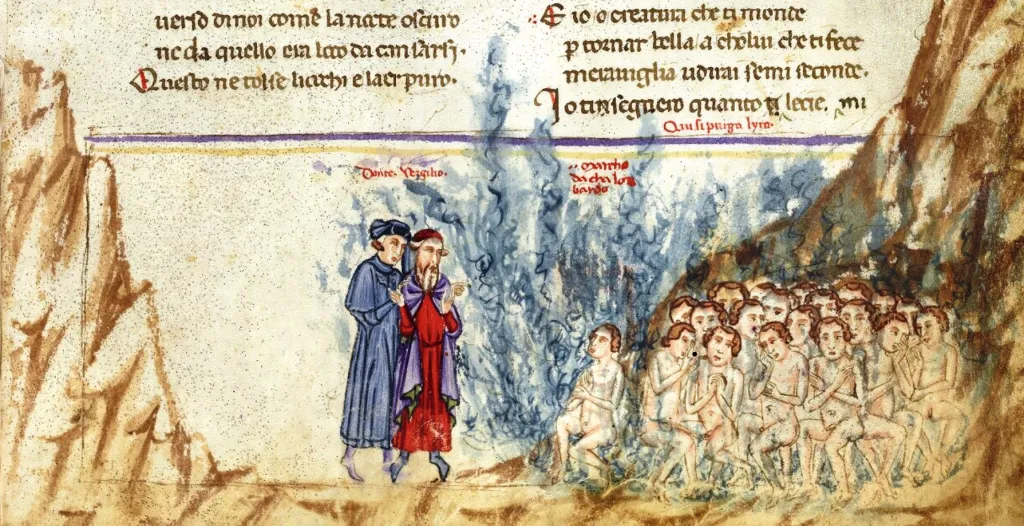 uerso di noi come la nocte oscuro
ne da quello era loco da cansarsi.
Questo ne tolse li occhi e laer puro.
E io o creatura che ti monde
p tornar bella a cholui che ti fece
merauiglia udirai se mi seconde.
Io ti seguero quanto mi lece,
Qui si purga lyra.
Dante. Vergilio.
marcho
da cha lon
bardo